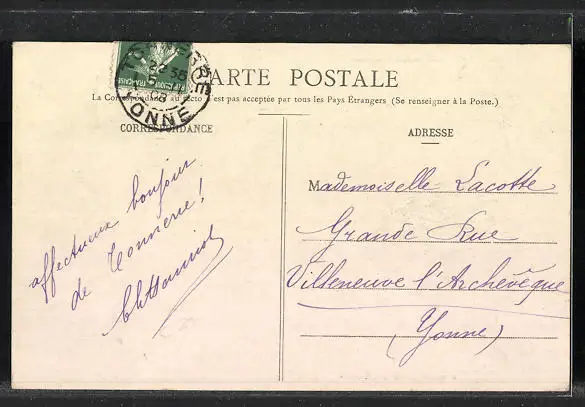 CARTE POSTALE
La Correspondance au recto n'est pas acceptée par tous les Pays Étrangers (Se renseigner à la Poste.)
CORRESPONDANCE
ADRESSE
TONNERRE
YONNE
08
REPUBLIQUE FRANÇAISE
affectueux bonjour
de Tonnerre!
Mademoiselle Lacotte
Grande Rue
Villeneuve l'Archevêque
(Yonne)